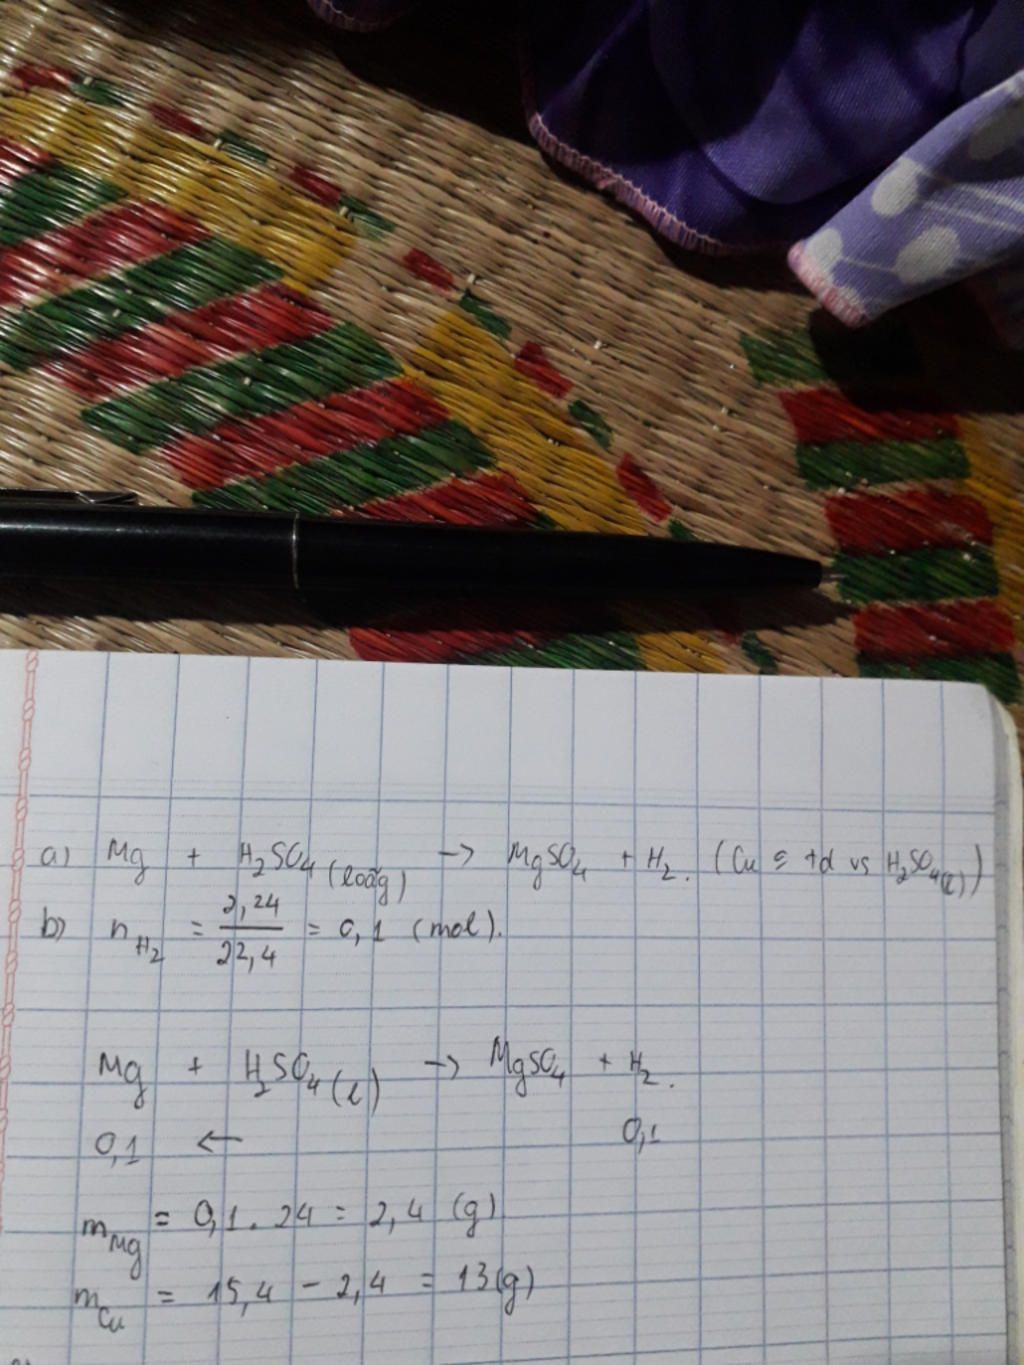 a) Mg + H2SO4 (loãg) → MgSO4 + H2. (Cu ≤ td vs H2SO4(l))
b) nH2 = 2,24/22,4 = 0,1 (mol).
Mg + H2SO4(l) → MgSO4 + H2.
0,1 ← 0,1
mMg = 0,1 . 24 = 2,4 (g)
mCu = 15,4 - 2,4 = 13(g)